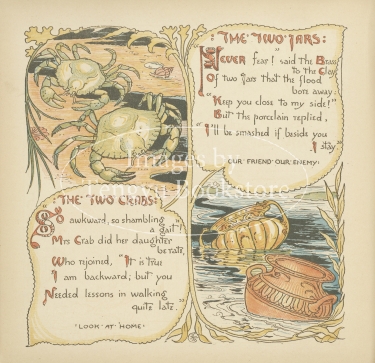 THE TWO JARS:
NEVER fear!" said the Brass
to the Clay,
Of two jars that the flood
bore away.
"Keep you close to my side!"
But the porcelain replied,
"I'll be smashed if beside you
I stay"
OUR FRIEND OUR ENEMY
THE TWO CRABS:
SO awkward, so shambling
a gait!
Mrs Crab did her daughter
berate,
Who rejoined, "It is true
I am backward; but you
Needed lessons in walking
quite late."
LOOK AT HOME
Images by
Lenswit Bookstore